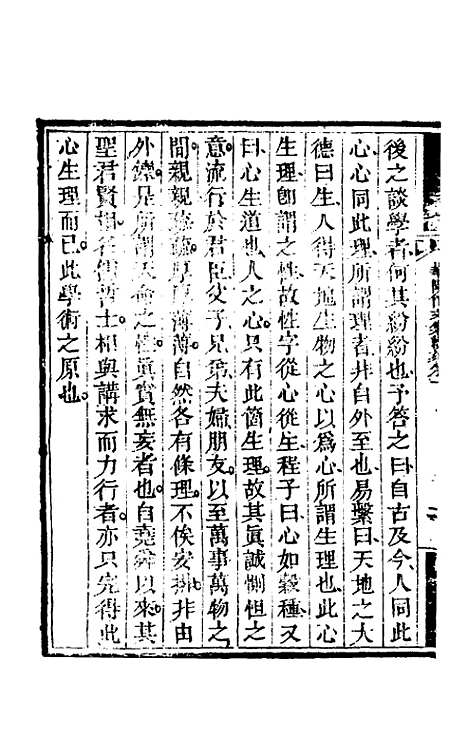 後之談學者何其紛紛也予答之曰自古及今人同此
心心同此理所謂理者非自外至也易繫曰天地之大
德曰生人得天地生物之心以為心所謂生理也此心
生理即謂之性故性字從心從生程子曰心如穀種又
曰心生道也人之心只有此箇生理故其眞誠惻怛之
意流行於君臣父子兄弟夫婦朋友以至萬事萬物之
間親親疎疎厚厚薄薄自然各有條理不俟安排非由
外鑠是所謂天命之性眞實無妄者也自堯舜以來其
聖君賢相名儒哲士相與講求而力行者亦只完得此
心生理而已此學術之原也